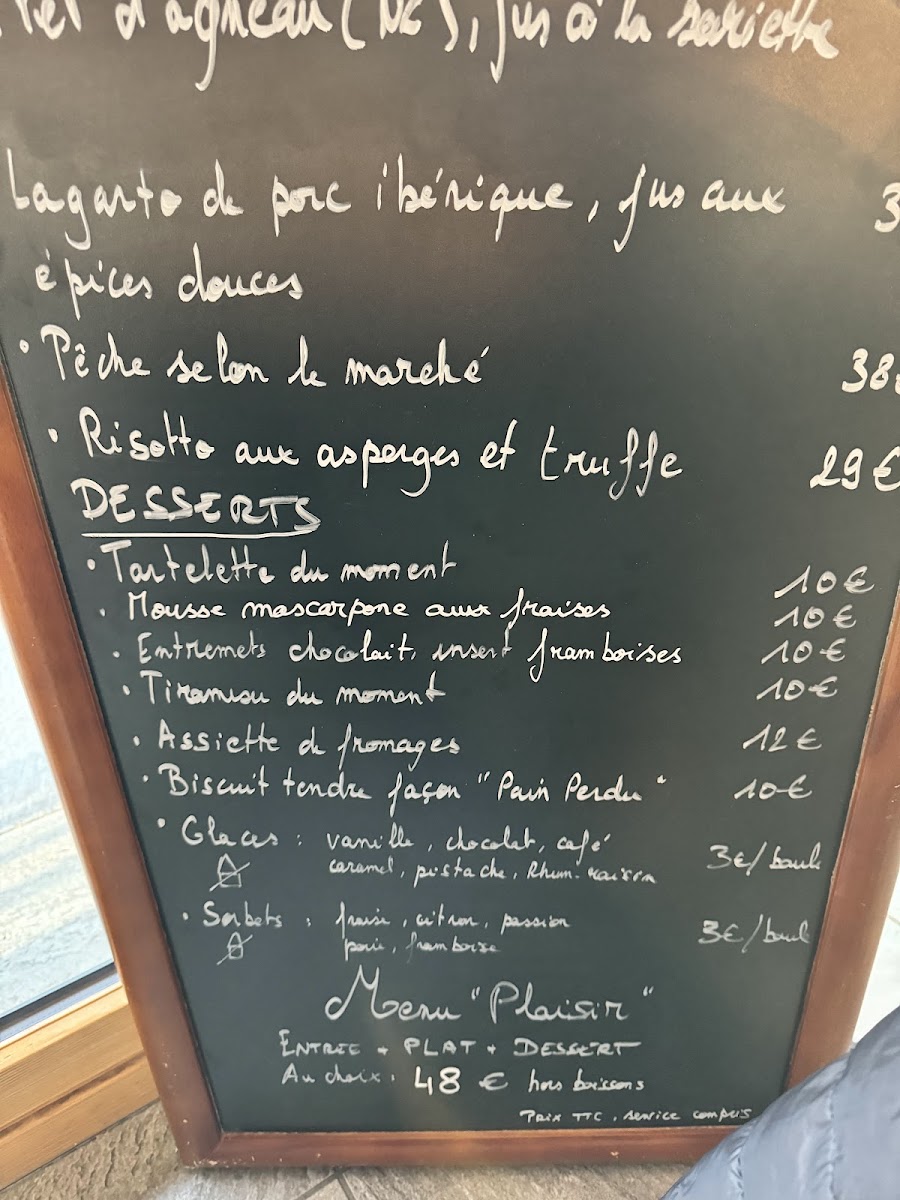 d'agneau (NZ), jus à la sariette
Lagarto de porc ibérique, jus aux 3
épices douces
• Pêche selon le marché 38€
• Risotto aux asperges et truffe 29€
DESSERTS
• Tartelette du moment 10€
• Mousse mascarpone aux fraises 10€
• Entremets chocolait, insert framboises 10€
• Tiramisu du moment 10€
• Assiette de fromages 12€
• Biscuit tendre façon "Pain Perdu" 10€
• Glaces : vanille, chocolat, café 3€/boule
caramel, pistache, Rhum-raisin
• Sorbets : fraise, citron, passion 3€/boule
poire, framboise
Menu "Plaisir"
ENTREE + PLAT + DESSERT
Au choix : 48 € hors boissons
Prix TTC, service compris